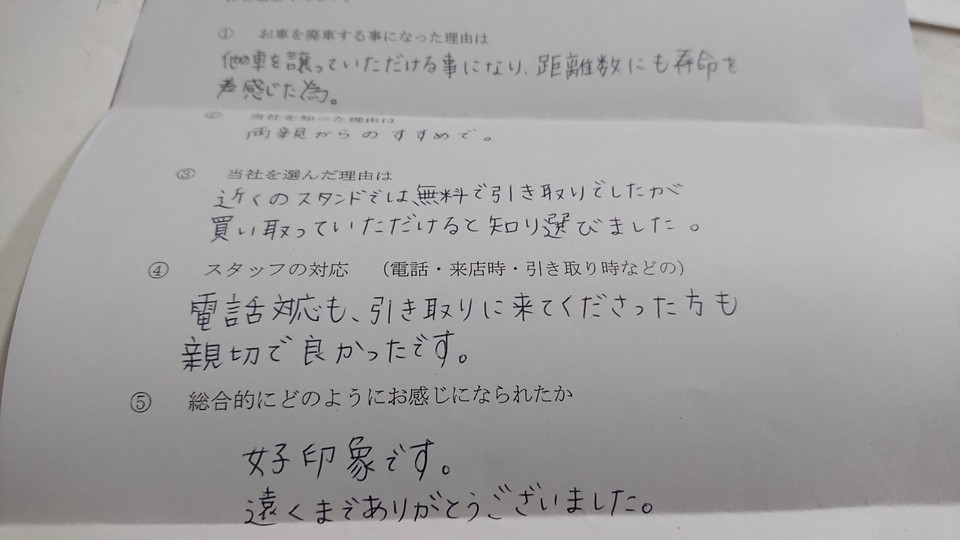 ① お車を廃車する事になった理由は
他の車を譲っていただける事になり、距離数にも寿命を
感じた為。
② 当社を知った理由は
両親からのすすめで。
③ 当社を選んだ理由は
近くのスタンドでは無料で引き取りでしたが
買い取っていただけると知り選びました。
④ スタッフの対応 （電話・来店時・引き取り時などの）
電話対応も、引き取りに来てくださった方も
親切で良かったです。
⑤ 総合的にどのようにお感じになられたか
好印象です。
遠くまでありがとうございました。